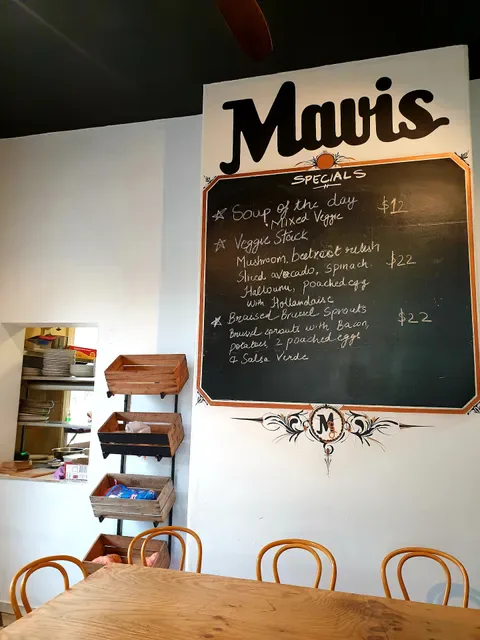 Mavis
SPECIALS
Soup of the day $12
Mixed Veggie
Veggie Stack
Mushroom, beetroot relish
Sliced avocado, spinach, $22
Halloumi, poached egg
with Hollandaise
Braised Brussel Sprouts $22
Brussel sprouts with Bacon,
potatoes, 2 poached eggs
& Salsa Verde
M